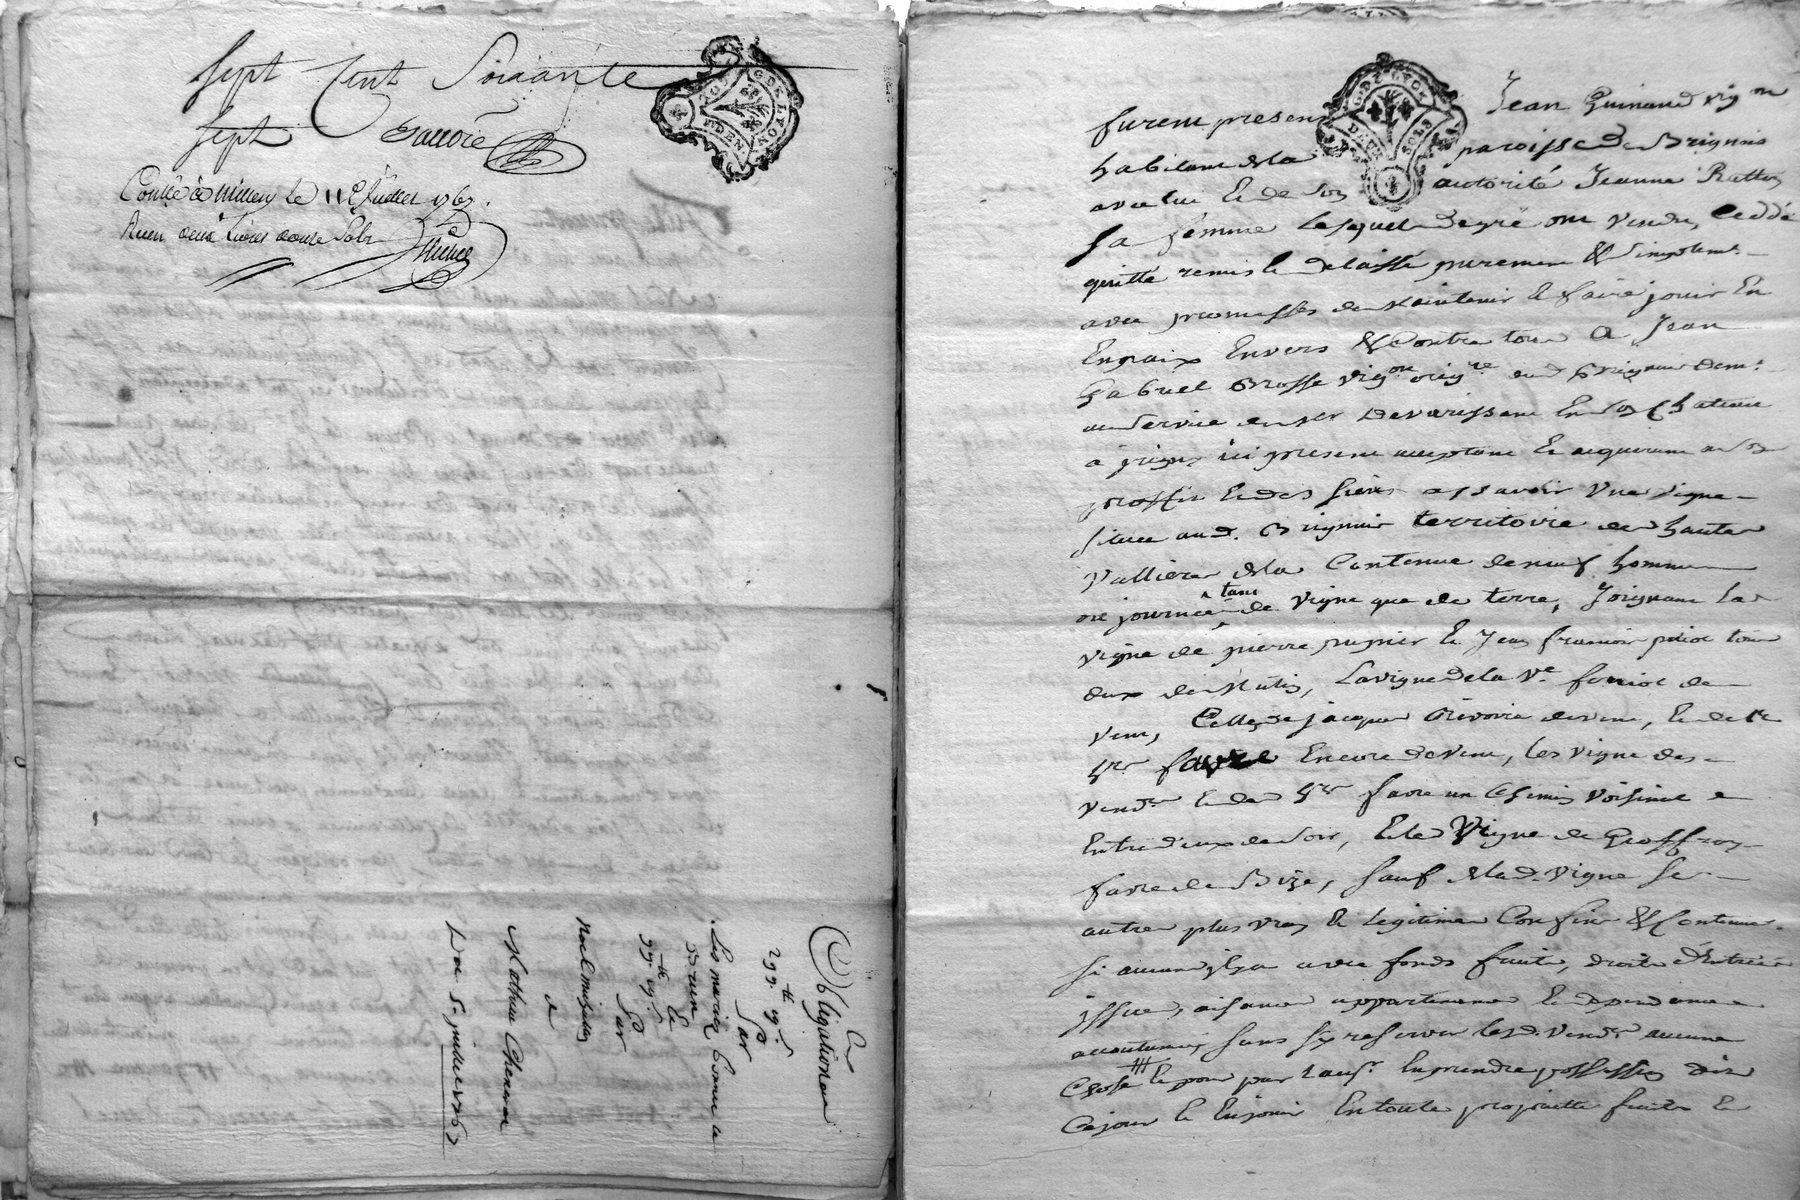 Sept Cent Soixante
Sept
Conllé à Millery le 11e Juillet 1767.
deux livres douze sols
G. DE LYON
Obligation
299 ₶ 19 s
Par
Les mariés
Brun
Et
99 ₶ 19 s
Par
Noel
a
Mathieu
Du 5e juillet 1767
Furent presens Jean Guinand vign
habitant de la paroisse de Brignais
avec lui Et de son autorité Jeanne
Sa femme Lesquels de gré ont vendu, Ceddé
quitté remis Et delaissé purement & Simplemt
avec promesses de Maintenir Et faire jouir En
En paix Envers & Contre tous a Jean
Gabriel Brosse vign orig.re dud Brignais demt
au Service du sr Devarissan En son Chateau
à ici present acceptant Et acquerant a Son
proffit Et des siens a sçavoir Une vigne
Située aud. Brignais territoire de hautes
Vallieres de la Contenue de neuf hommes
ou journées tant de vigne que de terre, Joignant La
vigne de pierre Et Jean François tous
deux de Matin, La vigne de la Ve de
vent, Celles de jacques Rivoire de vent, Et de
Sr favre Encore de vent, Les vigne des
vendrs Et de Sr favre un Chemin voisinal
Entre deux de Soir, Et la Vigne de Geoffroy
favre de Bize, Sauf de lad. Vigne Ses
autres plus vrais & legitimes Confins & Contenue
Si aucun il y a avec fonds fruits, droits d'Entrées
issues, aisances appartenances Et dependances
accoutumés, Sans Sy reserver Lesd. Vendrs aucune
Chose Et pour par Laqr En prendre possession dès
Cejour Et En jouir En toute proprieté fruits Et